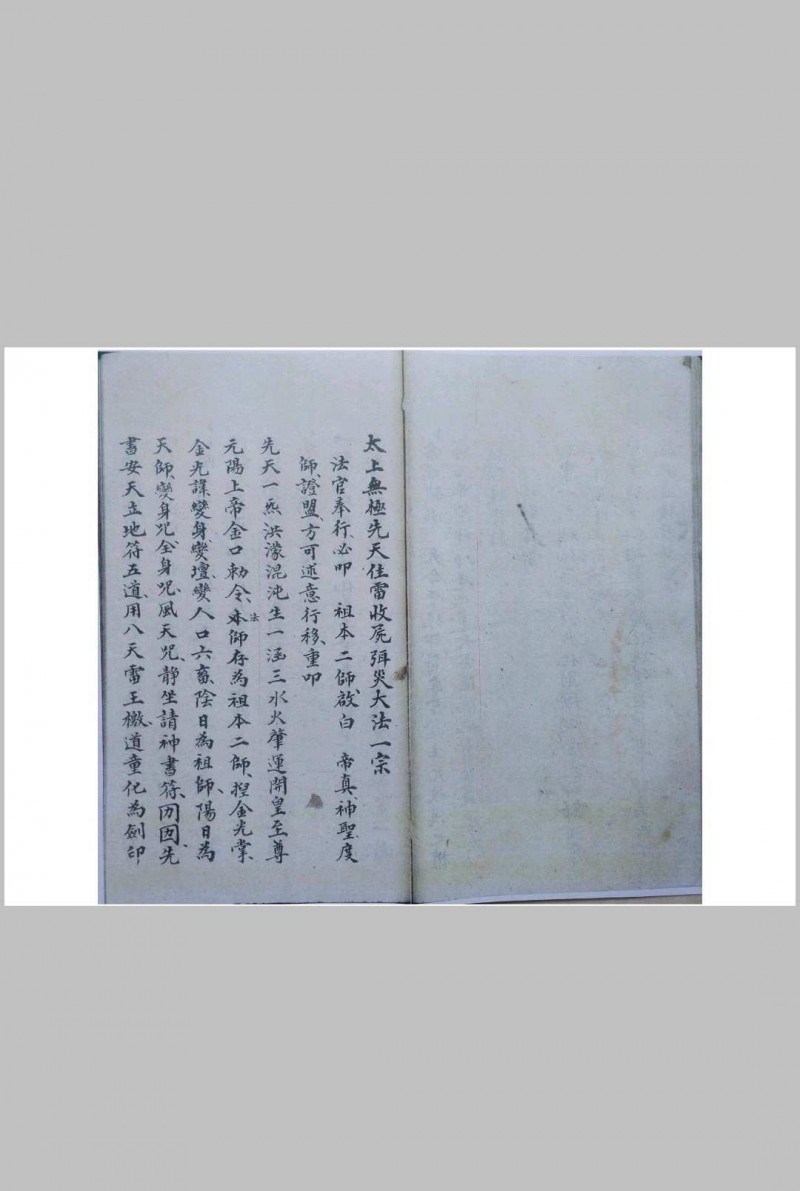 太上無極先天住雷收屍弭災大法一宗
法官奉行必叩 祖本二師啟白 帝真神聖度
師證盟方可述意行移重叩
先天一炁洪濛混沌生一涵三水火肇運開皇至尊
元陽上帝金口勅令本法師存為祖本二師揑金光掌
金光諱變身變壇變人口六畜陰日為祖師陽日為
天師變身咒全身咒風天咒靜坐請神書符先
書安天立地符五道用八天雷王檄道童化為劍印